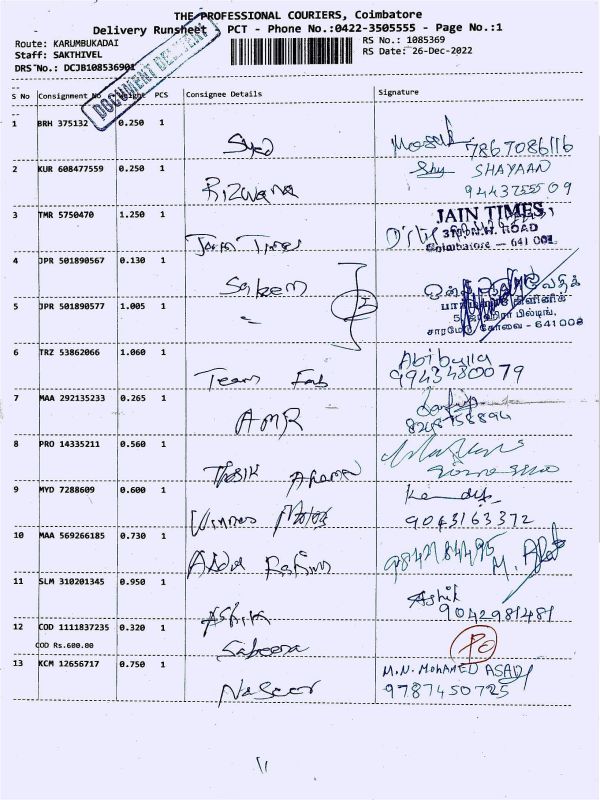 THE PROFESSIONAL COURIERS, Coimbatore
Delivery Runsheet PCT - Phone No.:0422-3505555 - Page No.:1
Route: KARUMBUKADAI
RS No.: 1085369
Staff: SAKTHIVEL
RS Date: 26-Dec-2022
DRS No.: DCJB108536901
DOCUMENT DELIVERY
S No Consignment No Weight PCS Consignee Details Signature
1 BRH 375132 0.250 1 Syed 7867086116
2 KUR 608477559 0.250 1 Rizwana SHAYAAN
9443755509
3 TMR 5750470 1.250 1 Jain Times JAIN TIMES
ROAD
Coimbatore - 641 001
4 JPR 501890567 0.130 1 Saleem
5 JPR 501890577 1.005 1 கோவை - 641008
6 TRZ 53862066 1.060 1 Team Fab Abibulla
9943480079
7 MAA 292135233 0.265 1 AMR
8248758894
8 PRO 14335211 0.560 1
9 MYD 7288609 0.600 1 Winners
9043163372
10 MAA 569266185 0.730 1 Abdul Rahim 9842184495
11 SLM 310201345 0.950 1 Ashik Ashik
9042981481
12 COD 1111837235 0.320 1 Sabeena
COD Rs.600.00
13 KCM 12656717 0.750 1 Naseer M.N. MOHAMED ASAD
9787450725